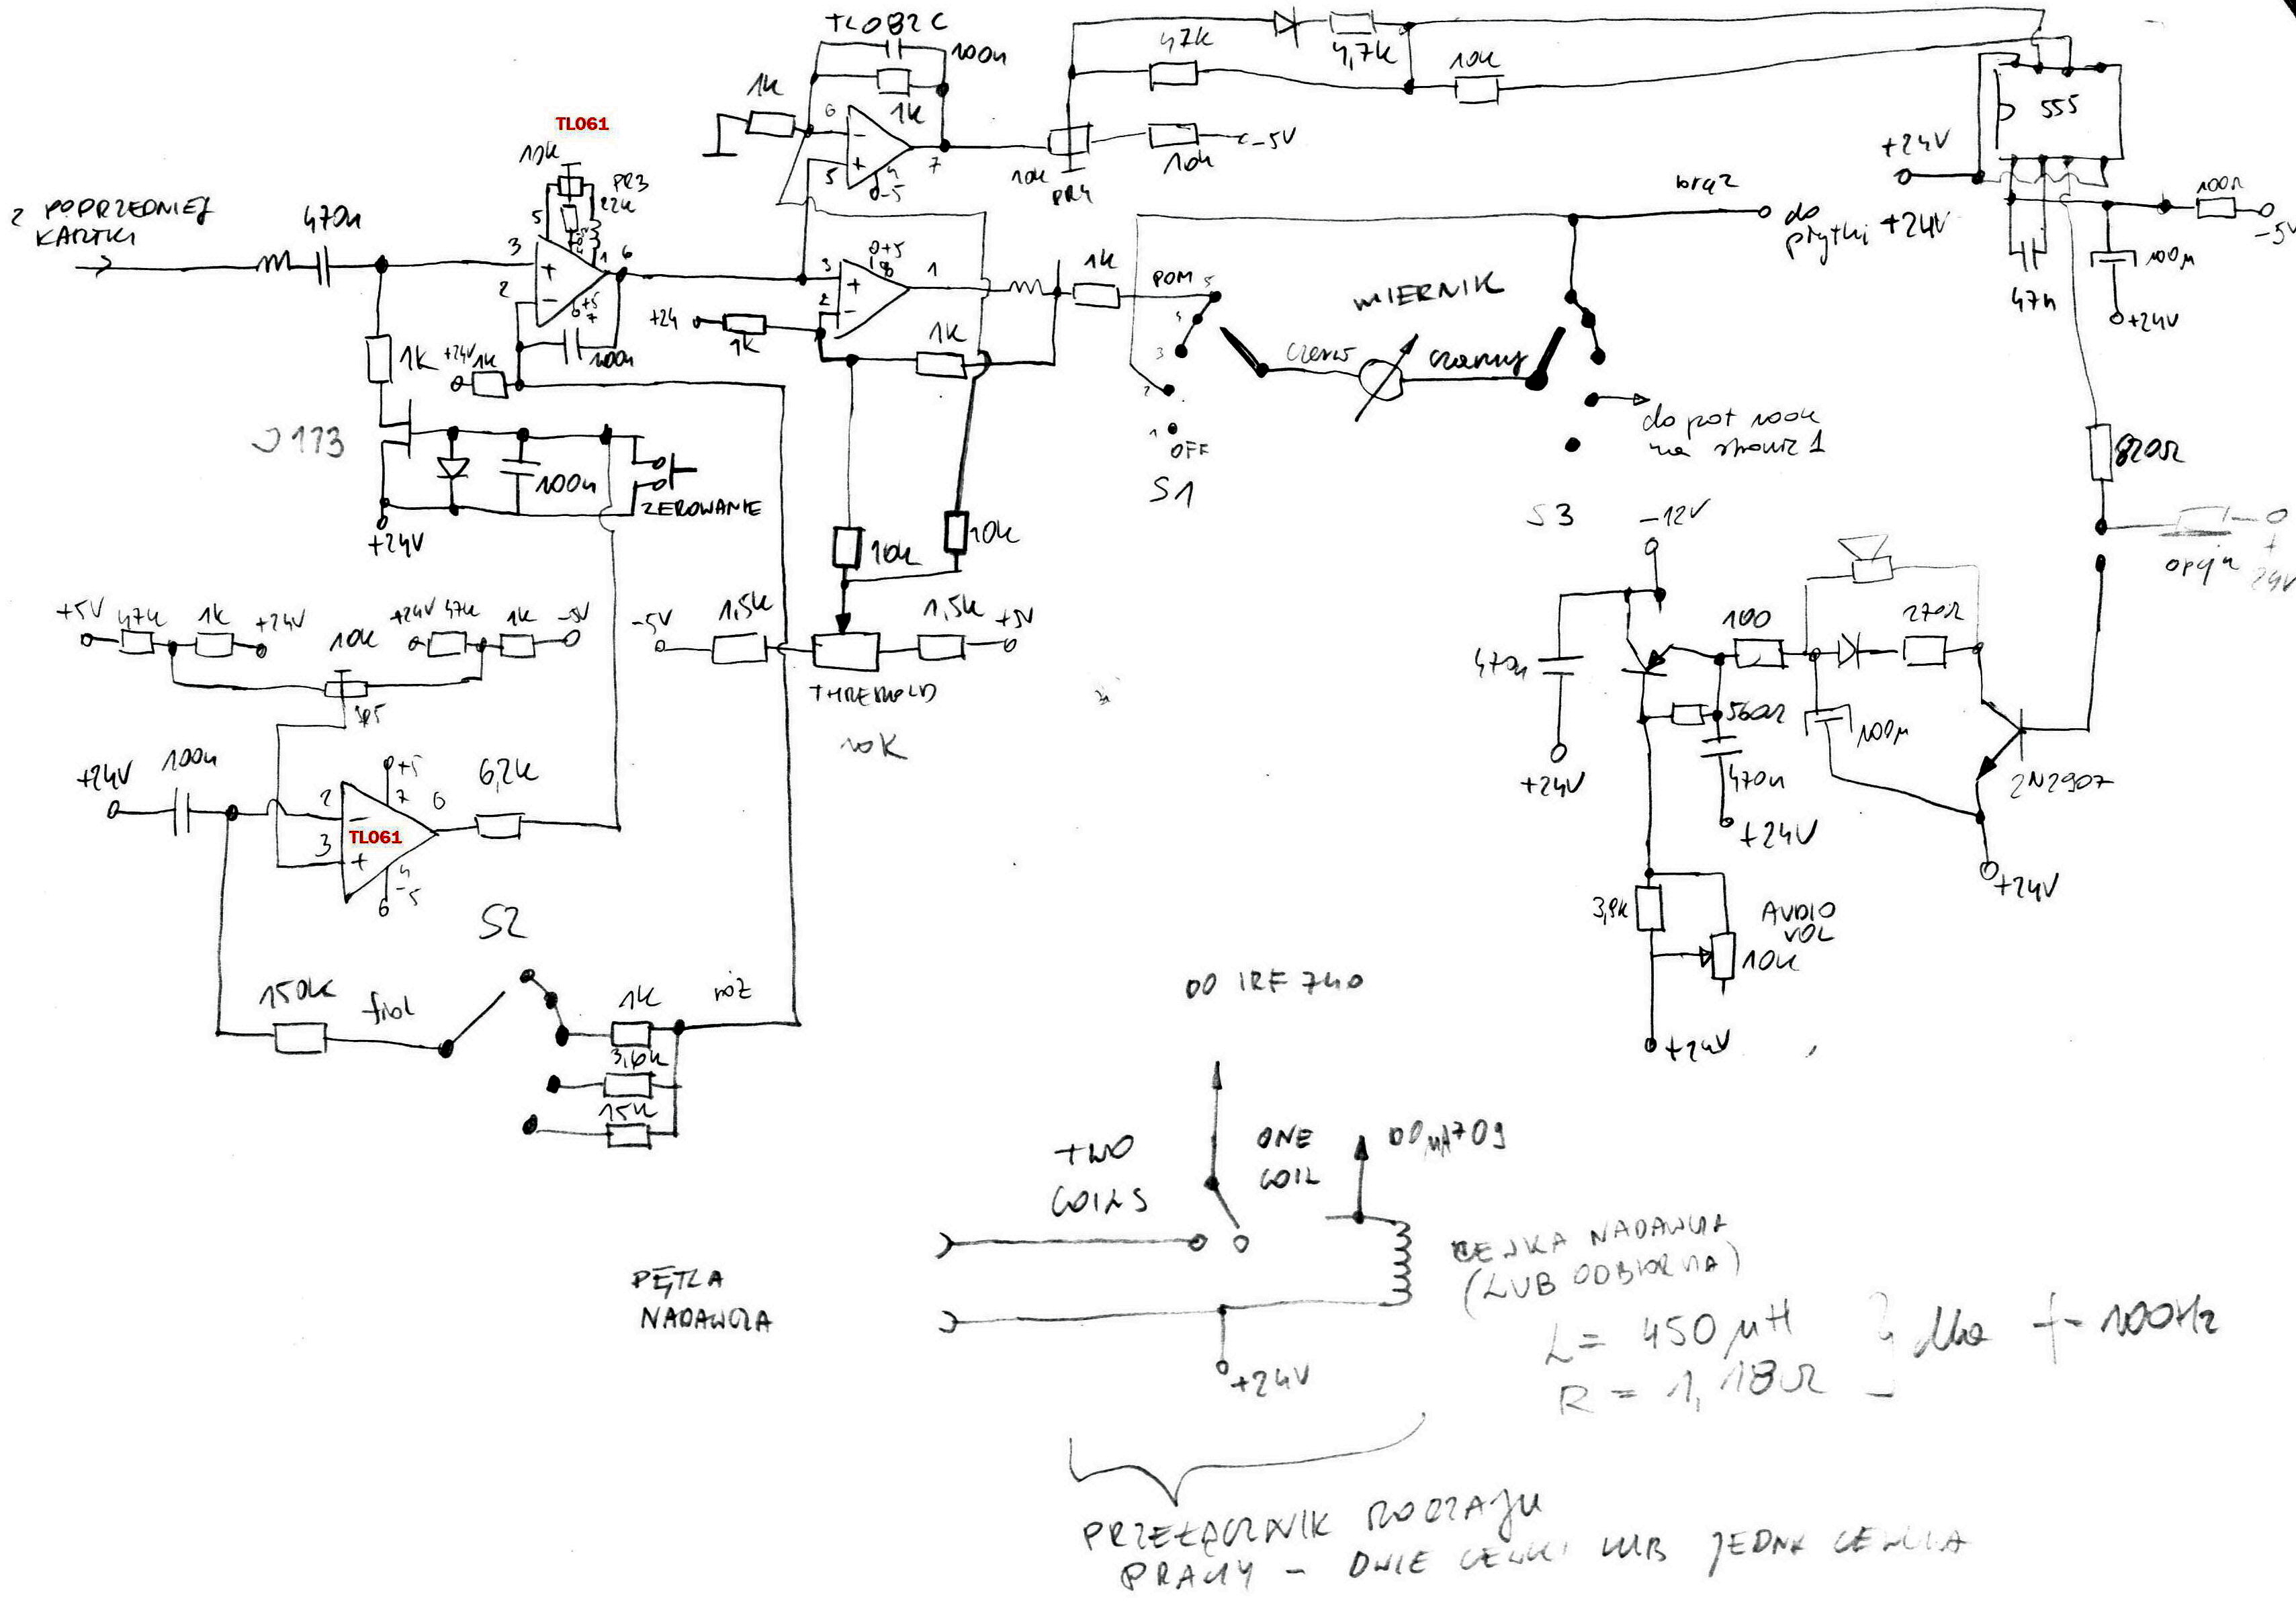 TL082C
100n
47k
4,7k
10k
1k
1k
6
5
4
-5
7
10k
PR4
10k
-5V
555
+24V
100Ω
-5V
100µ
+24V
47n
TL061
10k
PR3
22k
5
1
6
3
2
+5
7
100n
Z POPRZEDNIEJ
KARTKI
470n
1k
+24V
1k
J113
100n
ZEROWANIE
+24V
+24
1k
3
2
0+5
8
1
1k
1k
POM
5
4
3
2
1
OFF
S1
MIERNIK
czerw
czarny
brąz
do
płytki +24V
do pot 100k
na stronie 1
S3
10k
10k
-5V
1,5k
1,5k
+5V
THRESHOLD
10K
820Ω
opcja
+
24V
-12V
470n
+24V
100
270Ω
560Ω
100µ
470n
+24V
2N2907
+24V
3,9k
AUDIO
VOL
10k
+24V
+5V
47k
1k
+24V
10k
+24V
47k
1k
-5V
+24V
100n
2
3
TL061
+5
7
6
4
-5
6,2k
S2
150k
fiol
1k
róż
3,6k
15k
DO IRF 740
TWO
COILS
ONE
COIL
DO µA709
PĘTLA
NADAWCZA
+24V
CEWKA NADAWCZA
(LUB ODBIORCZA)
L = 450 µH
R = 1,18Ω
dla f- 100Hz
PRZEŁĄCZNIK RODZAJU
PRACY - DWIE CEWKI LUB JEDNA CEWKA